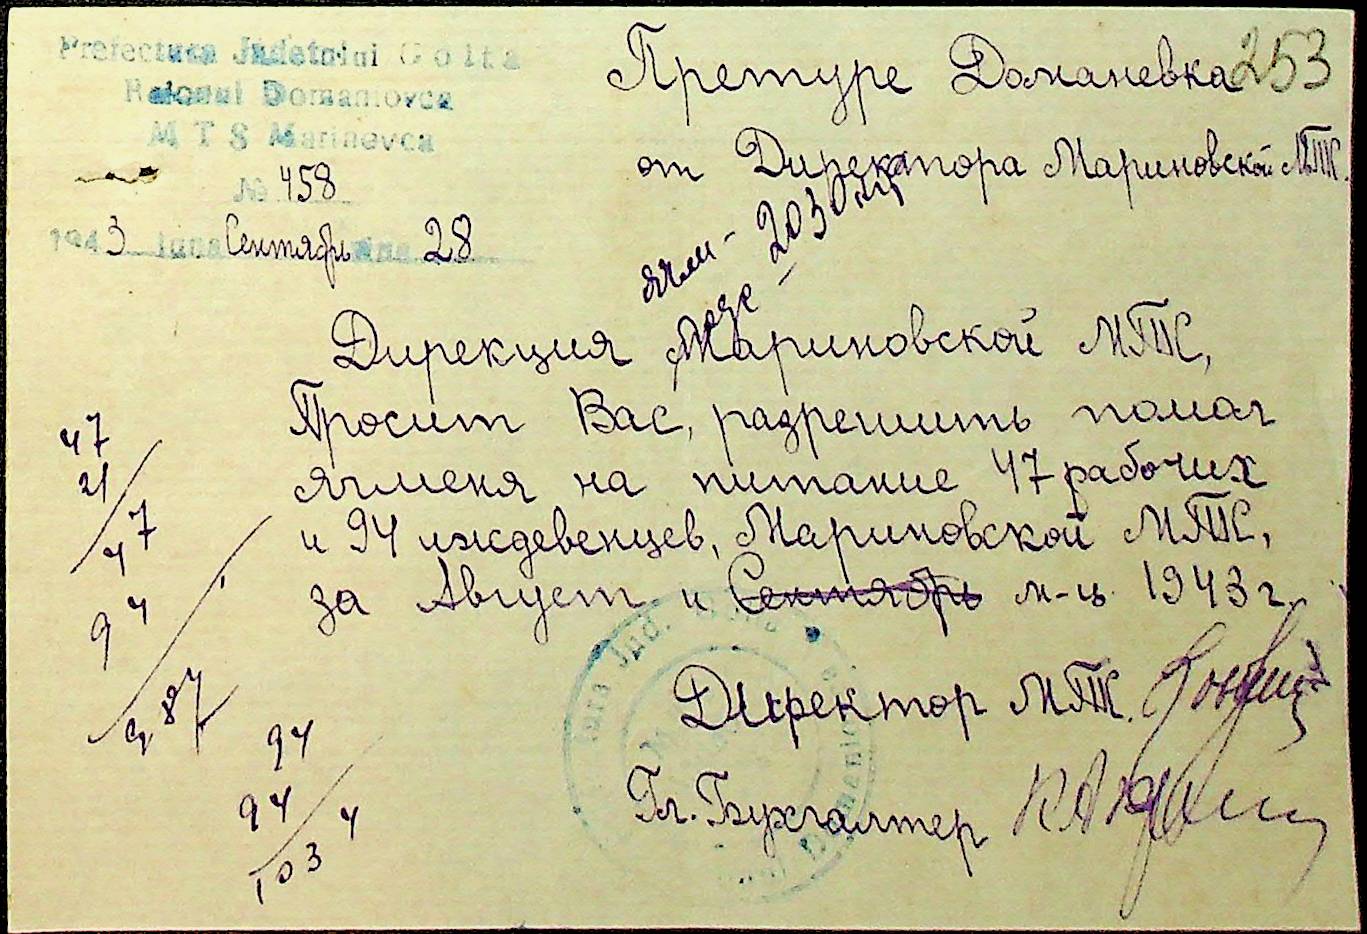 Prefectura Judetului Golta
Raionul Domaniovca
M T S Marinovca
№ 458
1943 luna Сентябрь ziua 28
253
Претуре Доманевка
от Директора Мариновской МТС.
Дирекция Мариновской МТС,
Просит Вас, разрешить помол
ячменя на питание 47 рабочих
и 94 иждевенцев, Мариновской МТС,
за Август и Сентябрь м-ц 1943 г.
Директор МТС.
Гл. Бухгалтер
47
21
47
94
987
94
94
1034